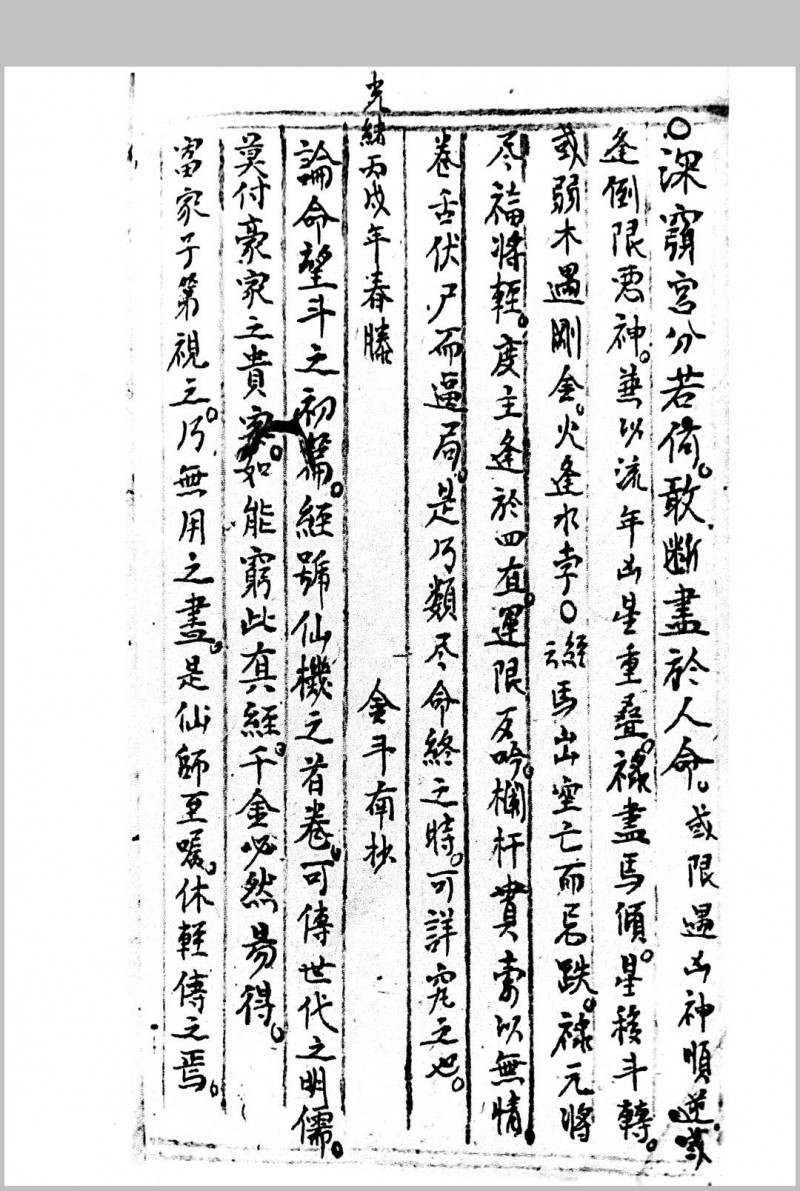 ○深窮宮分若何。敢斷盡於人命。或限遇凶神順逆或
逢倒限惡神。兼以流年凶星重叠。祿盡馬傾。星移斗轉。
或弱木遇剛金。火逢水孛○經云馬出空亡而忌跌。祿元將
尽福將輕。度主逢於四直。運限反吟。欄杆貫索以無情。
卷舌伏尸而逼局。是乃類尽命終之時。可詳究之也。
光緒丙戌年春賸 金斗南抄
論命望斗之初篇。經號仙機之首卷。可傳世代之明儒。
莫付豪家之貴客。如能窮此真經。千金必然易得。
富家子第視之。乃無用之畫。是仙師至囑。休輕傳之焉。